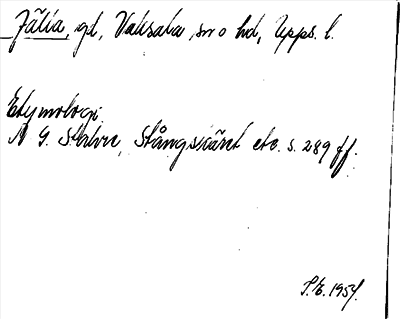 Jälla, gd, Vaksala, sn o hd, Upps. l.
Etymologi.
N G. Stahre, Stångskäret etc. s. 289 ff.
S.E. 1954.